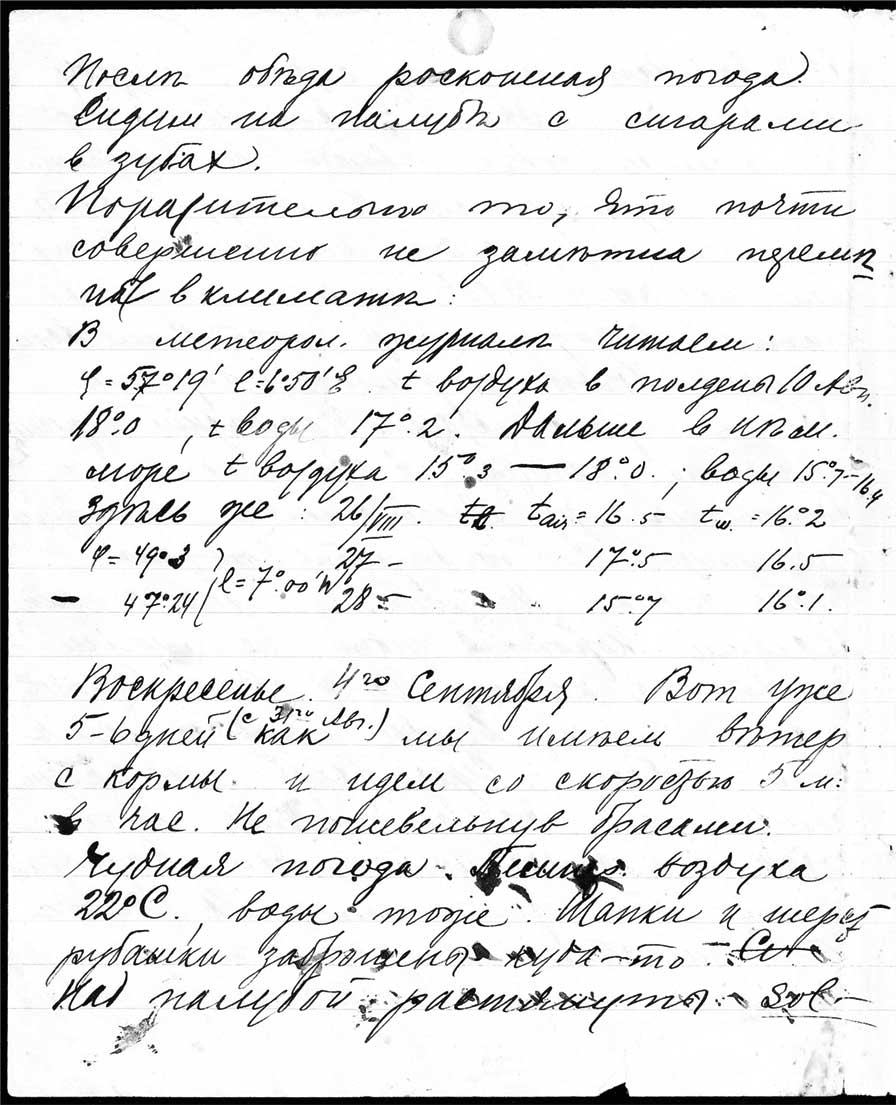 Послѣ обѣда роскошная погода.
Сидим на палубѣ с сигарами
в зубах.
Поразительно то, что почти
совершенно не замѣтна перемѣ
на в климатѣ:
В метеорол. журналѣ читаем:
φ = 57°19' l = 6°50' E. t воздуха в полдень 10 Авг.
18°.0, t воды 17°.2. Дальше в нѣм.
море t воздуха 15°.3 — 18°.0.; воды 15°.7-16.4
Здѣсь же: 26/VIII. t air = 16.5 t w. = 16°.2
φ = 49°.3 27 - 17°.5 16.5
— 47°.24 l = 7°.00' W 28 - 15°.7 16°.1.
Воскресенье. 4го Сентября. Вот уже
5-6 дней (с 31го Авг.) как мы имѣем вѣтер
с кормы и идем со скоростью 5 м.
в час. Не пошевельнув брасами.
Чудная погода. воздуха
22°С., воды тоже. Шапки и шерст
рубашки заброшены куда-то.
Над палубой растянуты